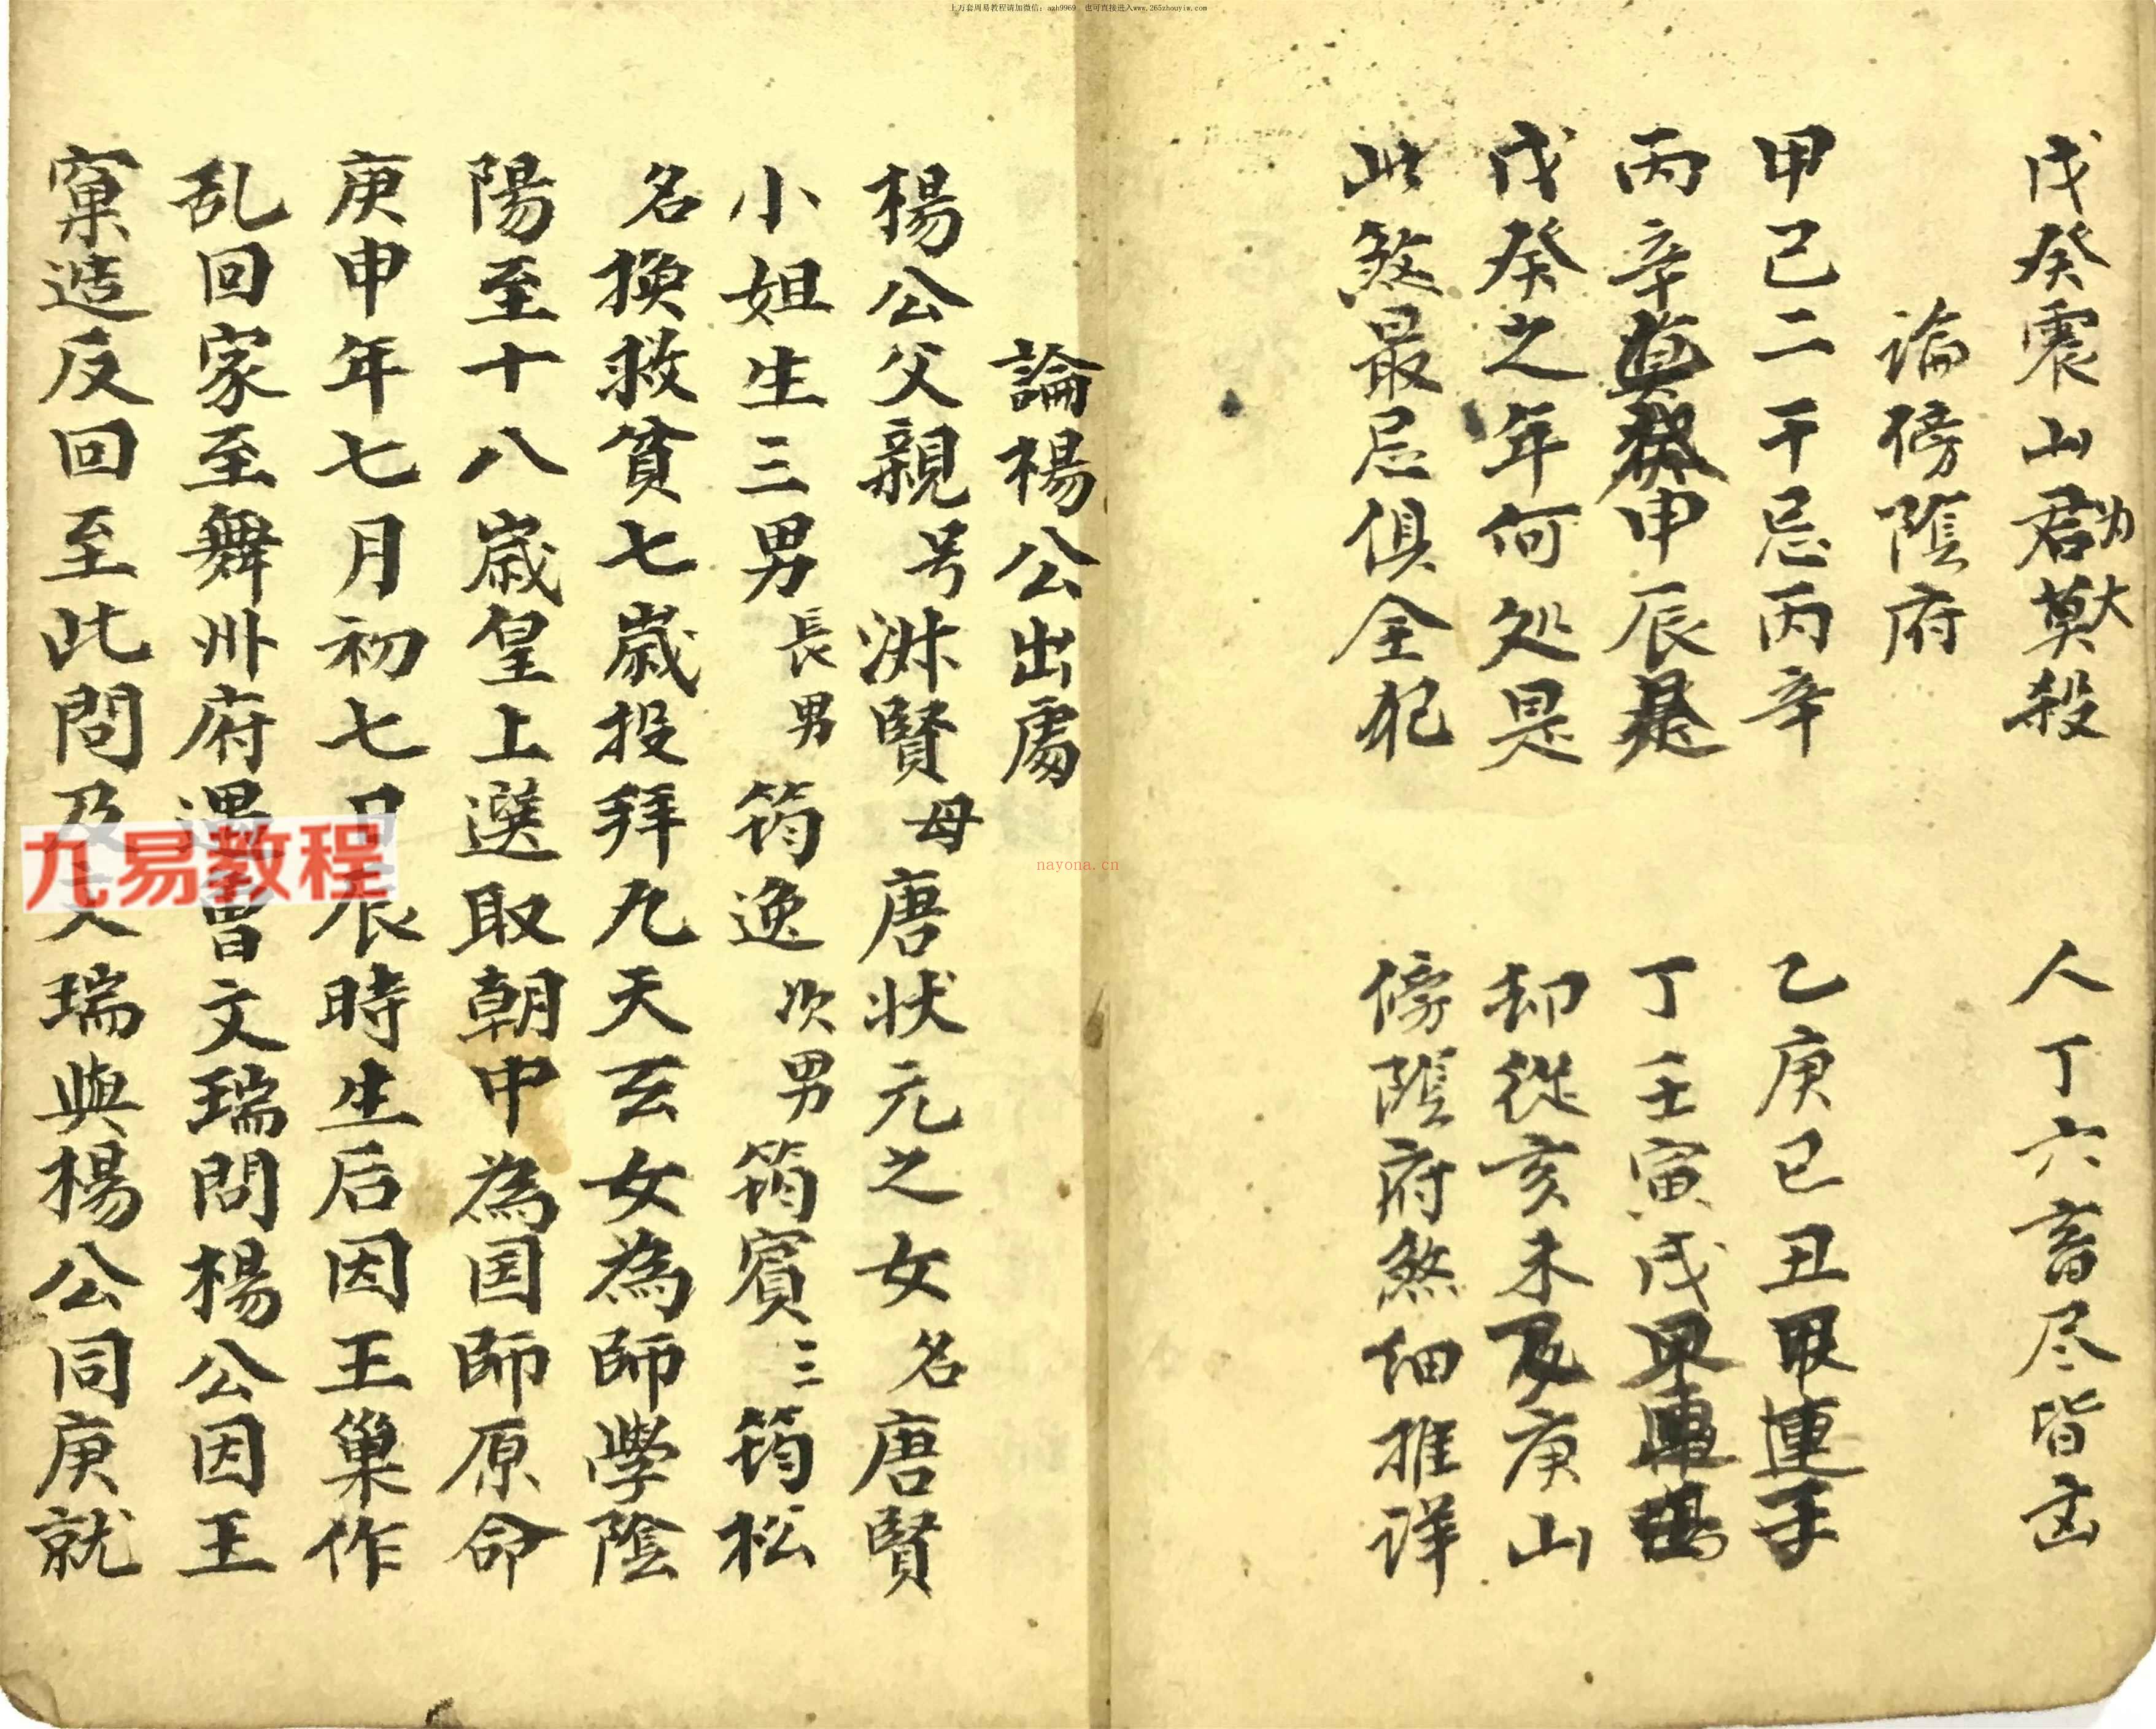 上万套周易教程请加微信：aah9969 也可直接进入www.265zhouyiw.com
戊癸震山君莫殺 人丁六畜尽皆凶
为大
论傍隂府
甲己二干忌丙辛 乙庚巳丑甲連手
丙辛申辰是 丁壬寅戌
戊癸之年何处是 却従亥未及庚山
此煞最忌俱全犯 傍隂府煞细推详
論楊公出處
楊公父親号淋賢母唐状元之女名唐賢
小姐生三男長男筠逸次男筠賓三筠松
名換救貧七歲投拜九天玄女為師學陰
陽至十八歲皇上選取朝中為国師原命
庚申年七月初七日辰時生后因王巢作
乱回家至舞州府遇曾文瑞問楊公因王
窠造反回至此問及文瑞與楊公同庚就
九易教程
nayona.cn